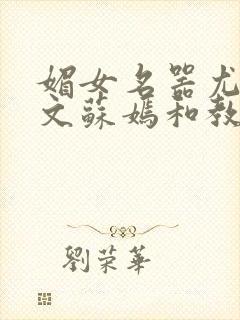 媚女名器尤
文蘇媽和教
劉荣華